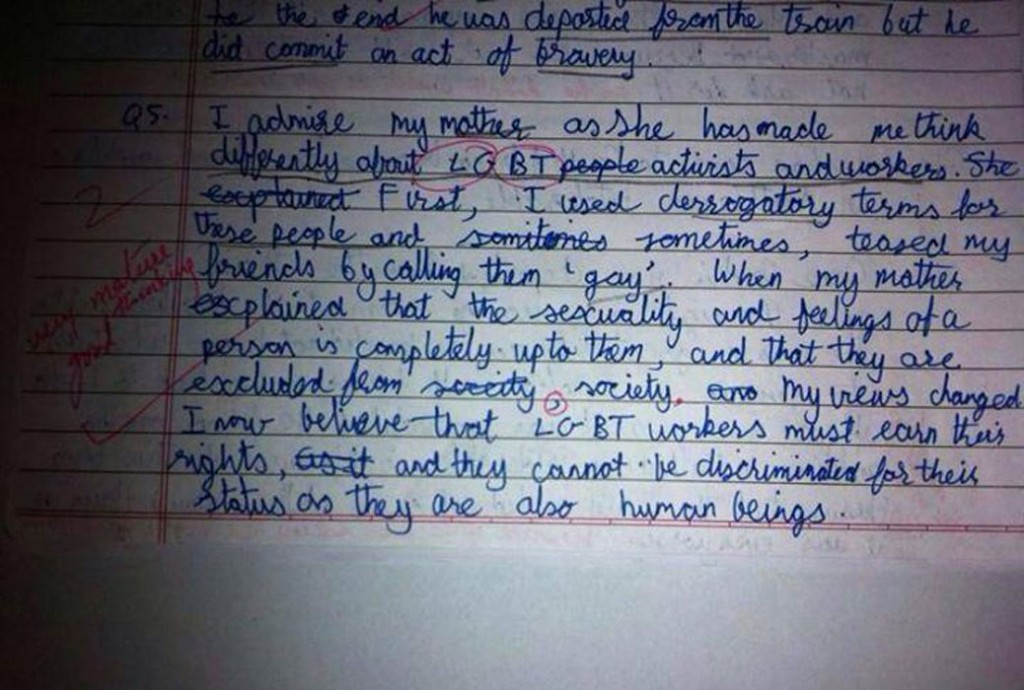 the the end he was departed from the train but he
did commit an act of bravery.
Q5. I admire my mother as she has made me think
differently about LGBT people activists and workers. She
explained First, I used derrogatory terms for
2
these people and somitomes sometimes, teased my
friends by calling them 'gay'. When my mother
very mature
good thinking
explained that the sexuality and feelings of a
person is completely upto them, and that they are
excluded from soceity, society. and My views changed
I now believe that LGBT workers must earn their
rights, as it and they cannot be discriminated for their
status as they are also human beings